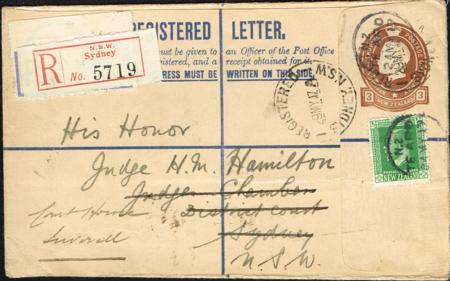 REGISTERED LETTER.
must be given to an Officer of the Post Office
registered, and a receipt obtained for it.
ADDRESS MUST BE WRITTEN ON THIS SIDE.
N.S.W.
Sydney
R No. 5719
REGISTERED
SYDNEY N.S.W
3 NEW ZEALAND 3
NEW ZEALAND
N.Z.
His Honor
Judge H.M. Hamilton
Judges Chambers
Court House District Court
Inverell Sydney
N.S.W.